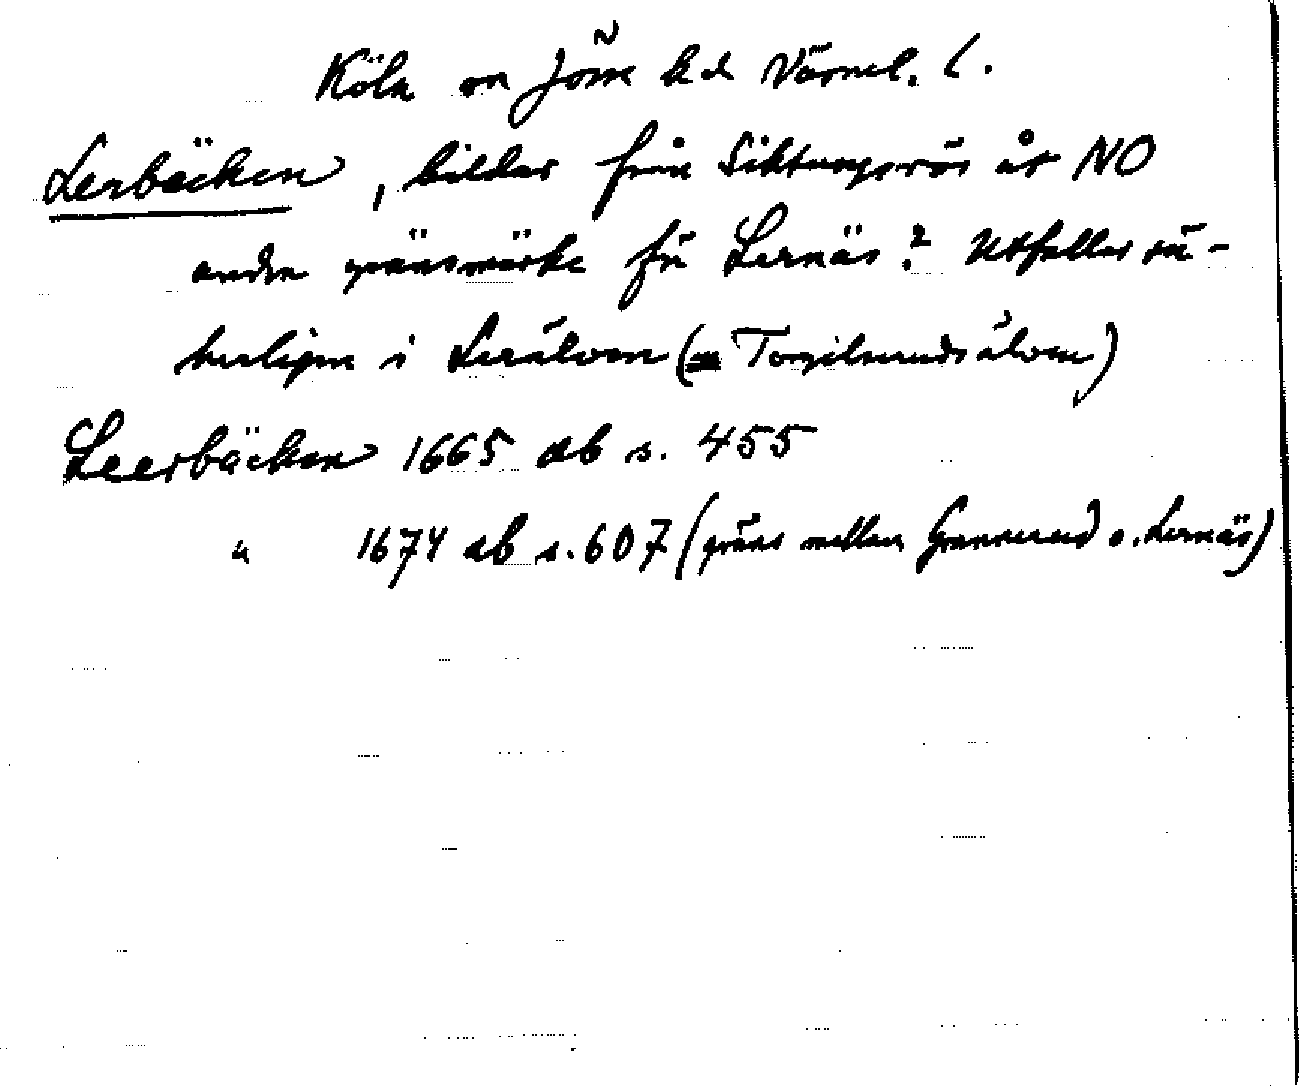 Köla sn Jösse hd Värmel. l.
Lerbäcken, bildar från Siktungsrös åt NO
andra gränsmärke för Lernäs? Utfaller sä-
kerligen i Lerälven (= Torgilsrudsälven)
Leerbäcken 1665 ab s. 455
" 1674 ab s. 607 (gräns mellan Grannerud o. Lernäs)